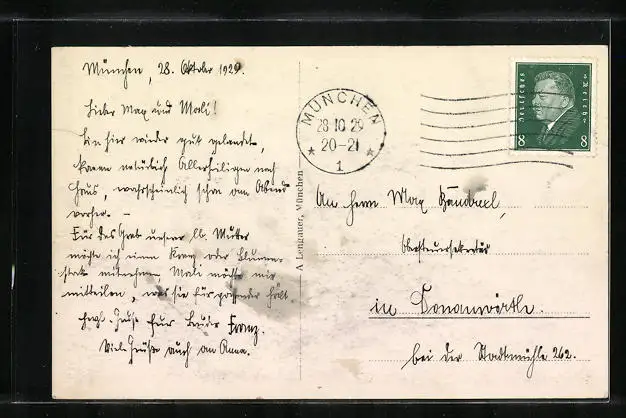 München, 28. Oktober 1929.
Lieber Max und Mali!
Bin hier wieder gut gelandet,
komme natürlich Allerheiligen nach
Haus, wahrscheinlich schon am Abend
vorher. –
Für das Grab unserer lb. Mutter
möchte ich einen Kranz oder Blumen-
stock mitnehmen. Mali möchte mir
mitteilen, was sie für passender hält.
Herzl. Grüße Euer Bruder Franz.
Viele Grüße auch an Anna.
A Lengauer, München
MÜNCHEN
28 10 29
20-21
1
Deutsches Reich
8 8
An Herrn Max
Obersteuersekretär
in Donauwörth.
bei der Stadtmühle 262.